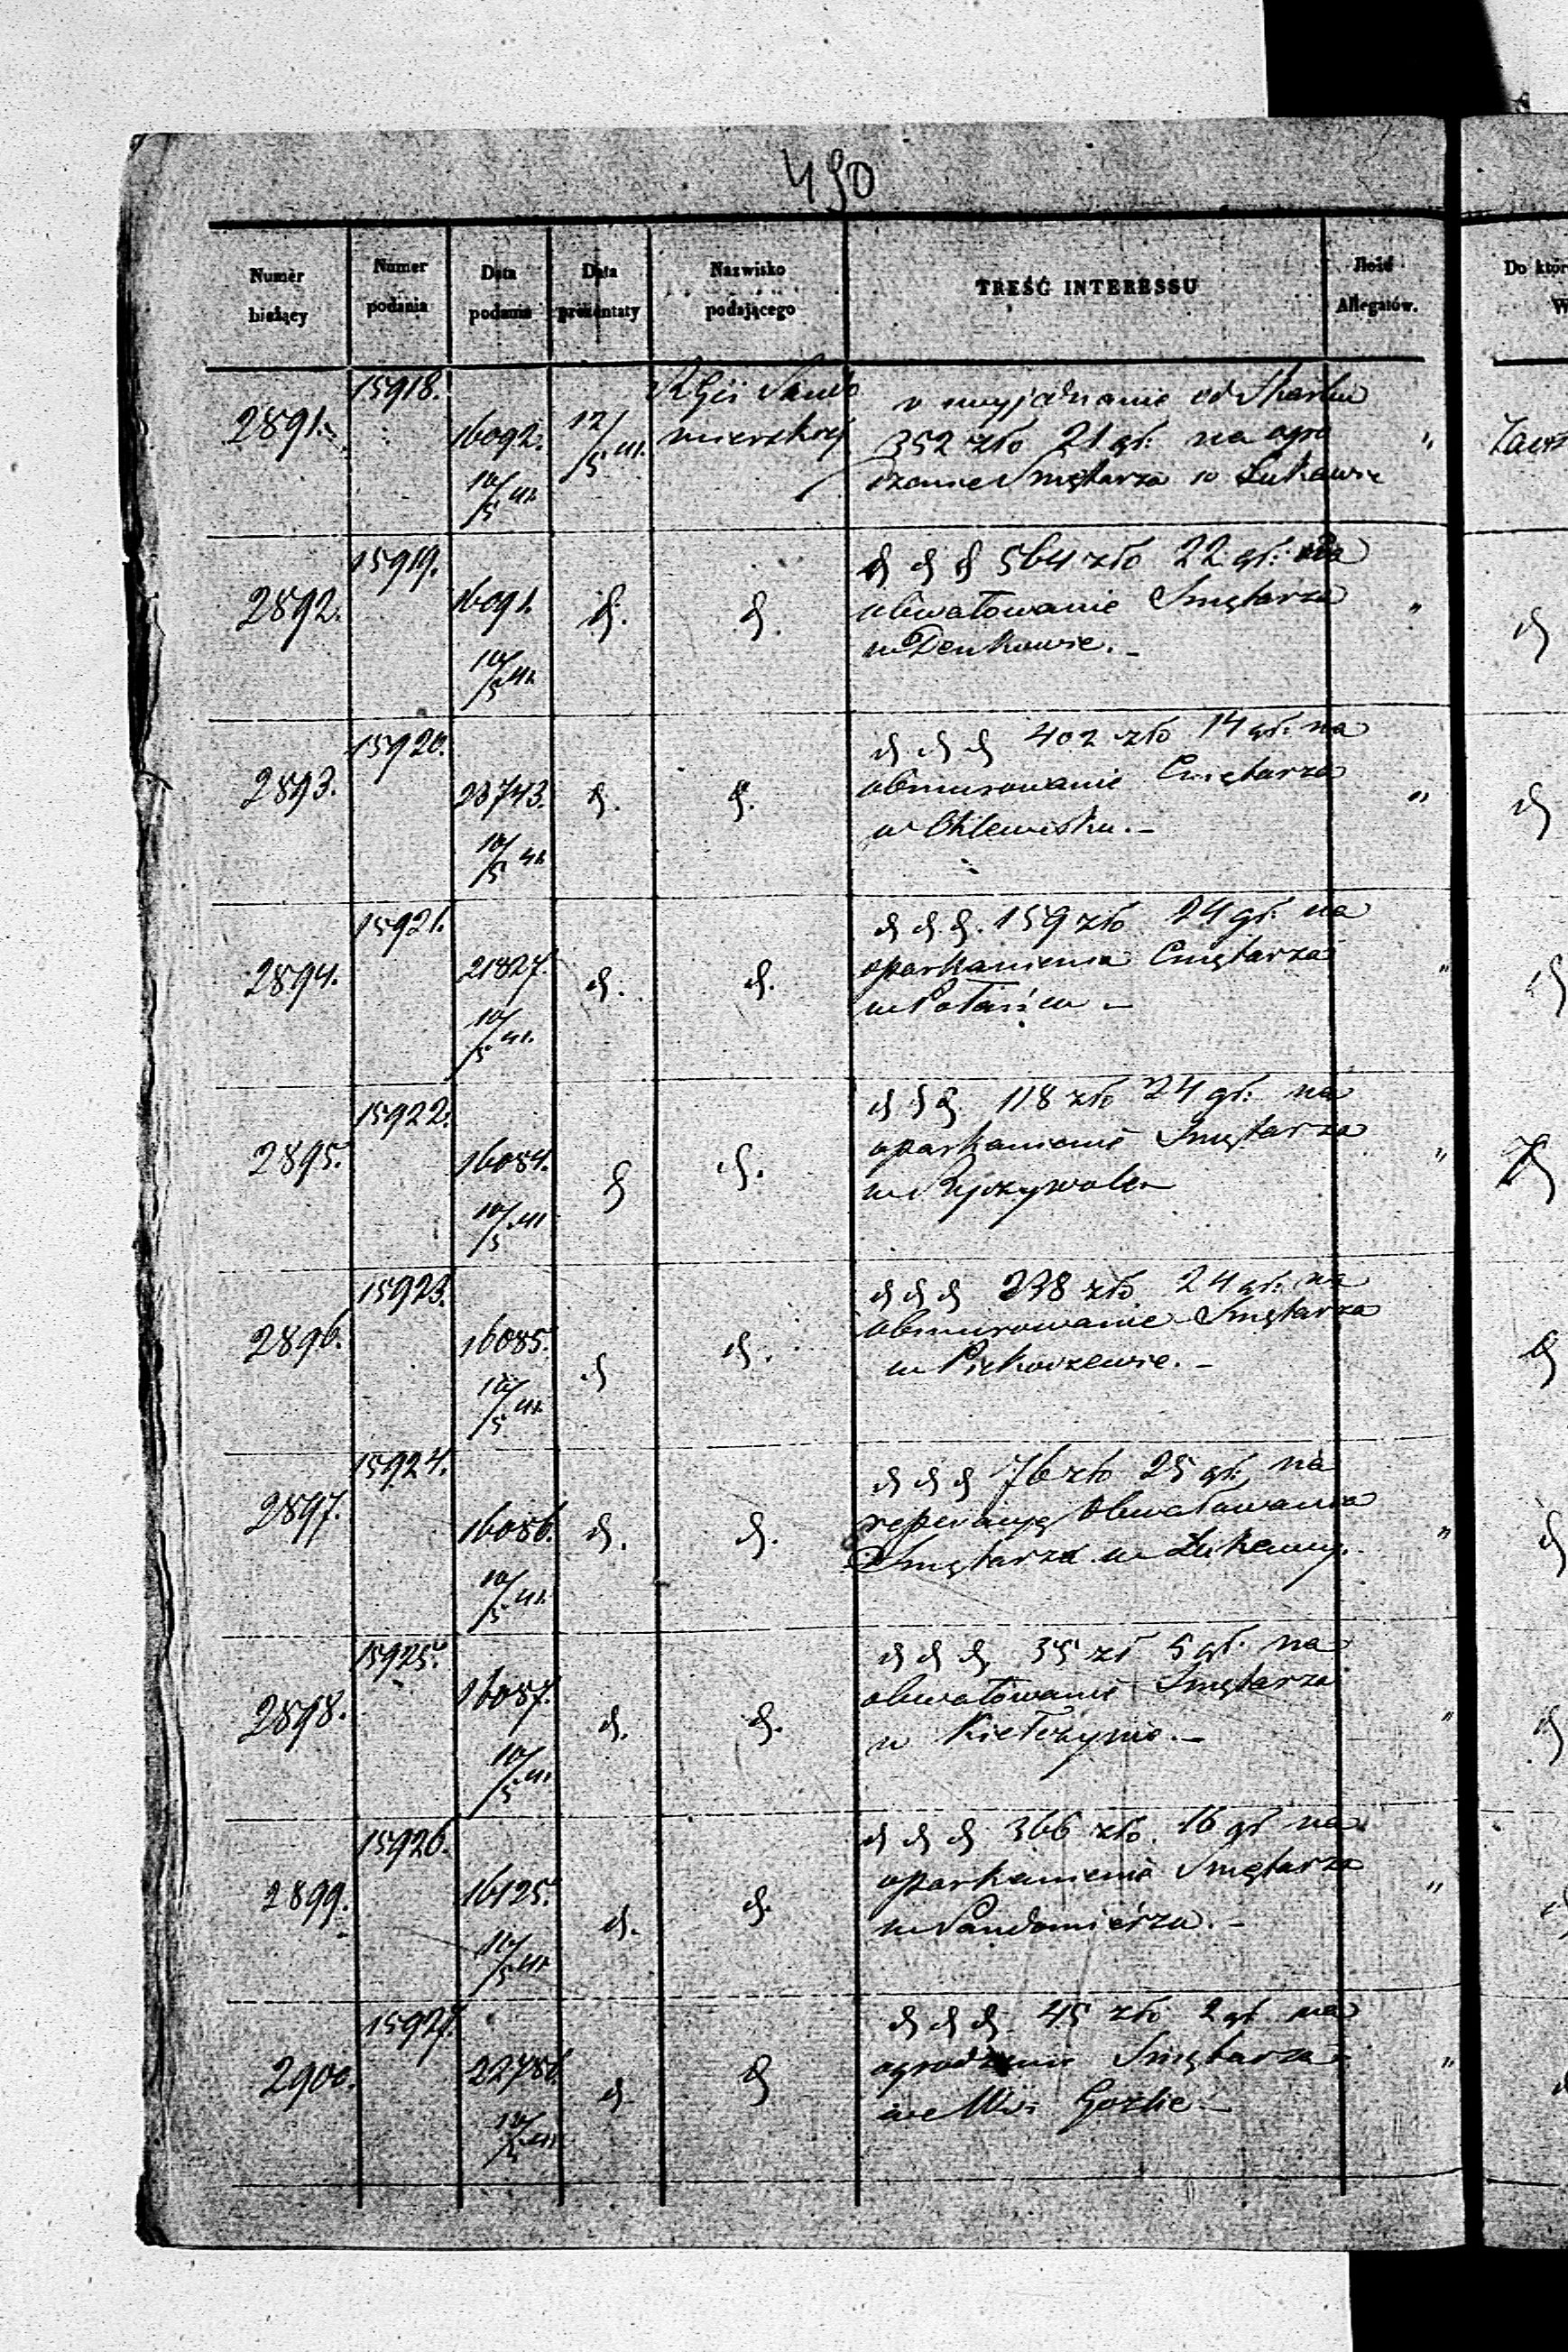 490
Numer bieżący
Numer podania
Data podania
Data prezentaty
Nazwisko podającego
TREŚĆ INTERESSU
Ilość Allegatów.
Do któr
W
2891.
15918.
16092.
10/5 41.
12/5 41.
RGii Sando
mierskiej
o wyjednanie od Skarbu
352 zło 21 gł: na ogro
dzenie Smętarza w Łukawie
"
2892.
15919.
16091.
10/5 41.
d.
d.
d d d 564 zło 22 gł: na
obwałowanie Smętarza
w Denkowie. -
"
d
2893.
15920.
23743.
10/5 41.
d.
d.
d d d 402 zło 14 gł: na
obmurowanie Cmętarza
w Chlewisku. -
"
d
2894.
15921.
21827.
10/5 41.
d.
d.
d d. d. 159 zło 24 gł: na
oparkanienia Cmętarza
w Połańcu -
"
d
2895.
15922.
16084.
10/5 41
d
d.
d d d. 118 zło 24 gł: na
oparkanienie Smętarza
w Ryczywole -
"
d
2896.
15923.
16085.
10/5 41.
d
d.
d d d 238 zło 24 gł: na
obmurowanie Smętarza
w Piekoszewie. -
d
2897.
15924.
16086.
10/5 41.
d.
d.
d d d 76 zło 25 gł: na
reperacyę Obwałowania
Smętarza w Łukawy.
"
d
2898.
15925.
16087.
10/5 41.
d.
d.
d d d. 35 zł 5 gł: na
obwałowanie Smętarza
w Kiełczynie. -
"
d
2899.
15926.
16125.
10/5 41.
d.
d.
d d d 366 zło. 16 gł na
oparkanienie Smętarza
w Sandomierzu. -
"
d
2900.
15927.
22786.
10/5 41
d
d
d d d. 45 zło 2 gł. na
ogrodzenie Smętarza
we Wsi Goźlic -
"